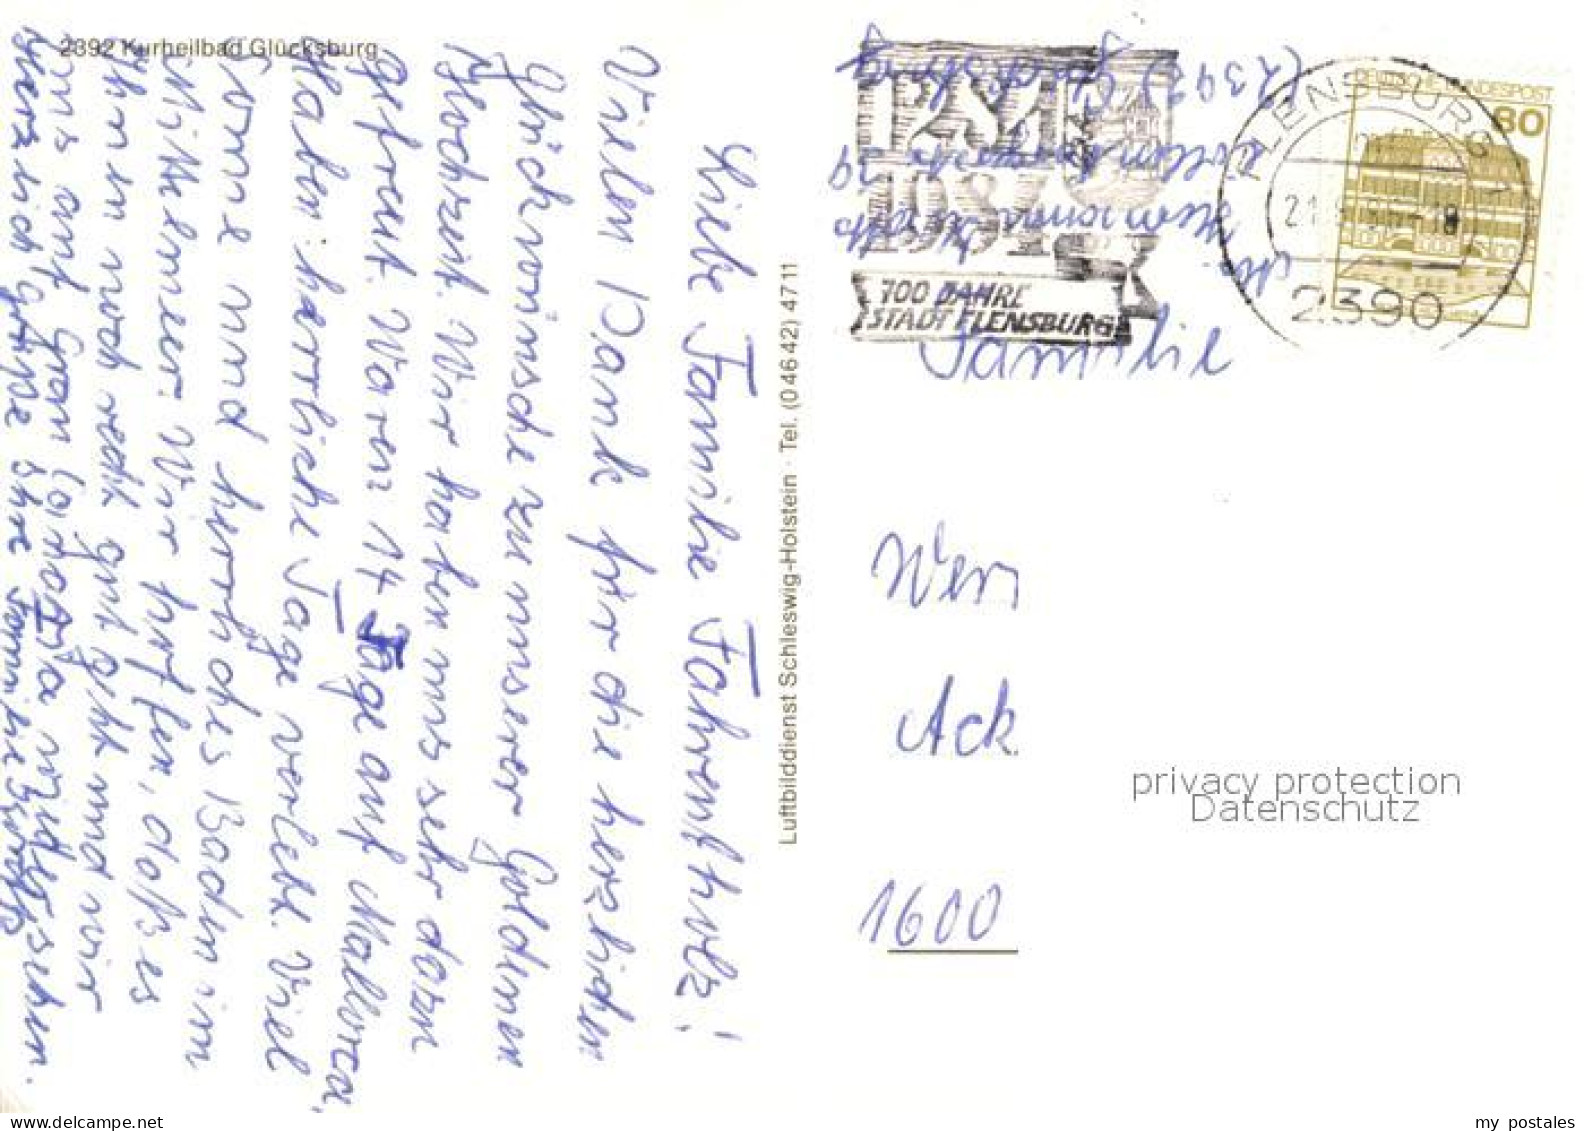 2392 Kurheilbad Glücksburg
Liebe Familie Fahrenholz!
Vielen Dank für die herzlichen
Glückwünsche zu unserer Goldenen
Hochzeit. Wir haben uns sehr dazu
gefreut. Waren 14 Tage auf Mallorca,
Haben herrliche Tage verlebt. Viel
Sonne und herrliches Baden im
Mittelmeer. Wir hoffen, daß es
Ihnen noch recht gut geht und wir
uns auf Gran wiedersehen.
Herzlich grüße Ihre Familie
Luftbilddienst Schleswig-Holstein · Tel. (0 46 42) 47 11
(2392) Glücksburg
1284
1984
700 JAHRE
STADT FLENSBURG
FLENSBURG
2390
DEUTSCHE BUNDESPOST
80
Familie
Wer
Ack
1600
privacy protection
Datenschutz
my postales